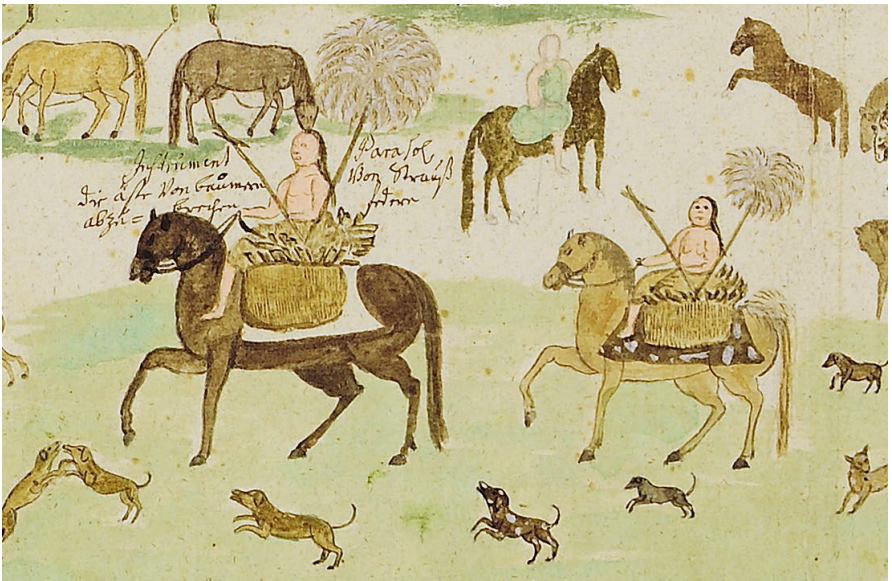 Instrument
die äste von baumen
abzu= brechen
Parasol
von Strauß
federn